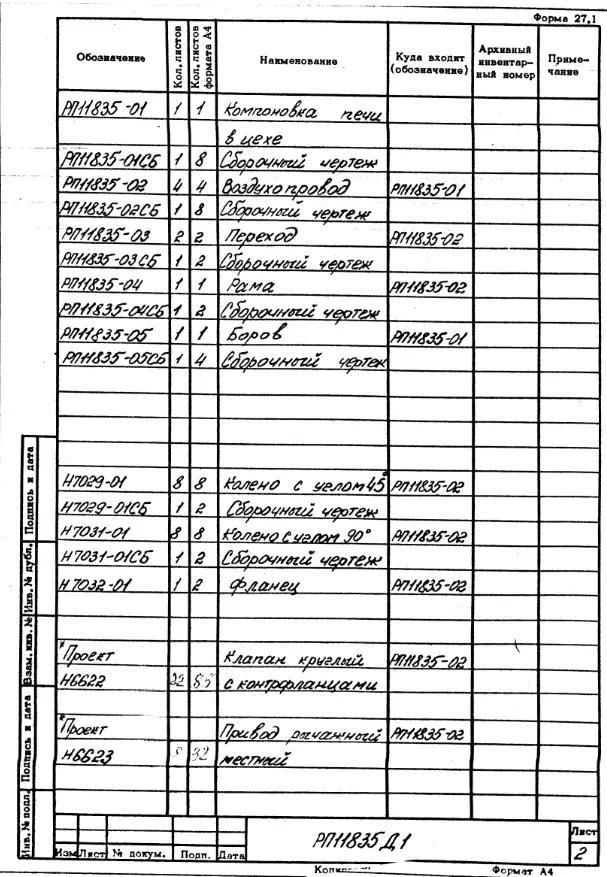 Форма 27,1
Обозначение Кол. листов Кол. листов формата А4 Наименование Куда входит (обозначение) Архивный инвентар-ный номер Приме-чание
РП11835-01 1 1 Компоновка печи
в цехе
РП11835-01СБ 1 8 Сборочный чертеж
РП11835-02 4 4 Воздухопровод РП11835-01
РП11835-02СБ 1 8 Сборочный чертеж
РП11835-03 2 2 Переход РП11835-02
РП11835-03СБ 1 2 Сборочный чертеж
РП11835-04 1 1 Рама РП11835-02
РП11835-04СБ 1 2 Сборочный чертеж
РП11835-05 1 1 Боров РП11835-01
РП11835-05СБ 1 4 Сборочный чертеж
Н7029-01 8 8 Колено с углом 45° РП11835-02
Н7029-01СБ 1 2 Сборочный чертеж
Н7031-01 8 8 Колено с углом 90° РП11835-02
Н7031-01СБ 1 2 Сборочный чертеж
Н7032-01 1 2 Фланец РП11835-02
*Проект Клапан круглый РП11835-02
Н6622 с контрфланцами
*Проект Привод рычажный РП11835-02
Н6623 32 местный
Инв. № подл. Подпись и дата Взам. инв. № Инв. № дубл. Подпись и дата
Изм Лист № докум. Подп. Дата
РП11835Д1
Лист
2
Формат А4